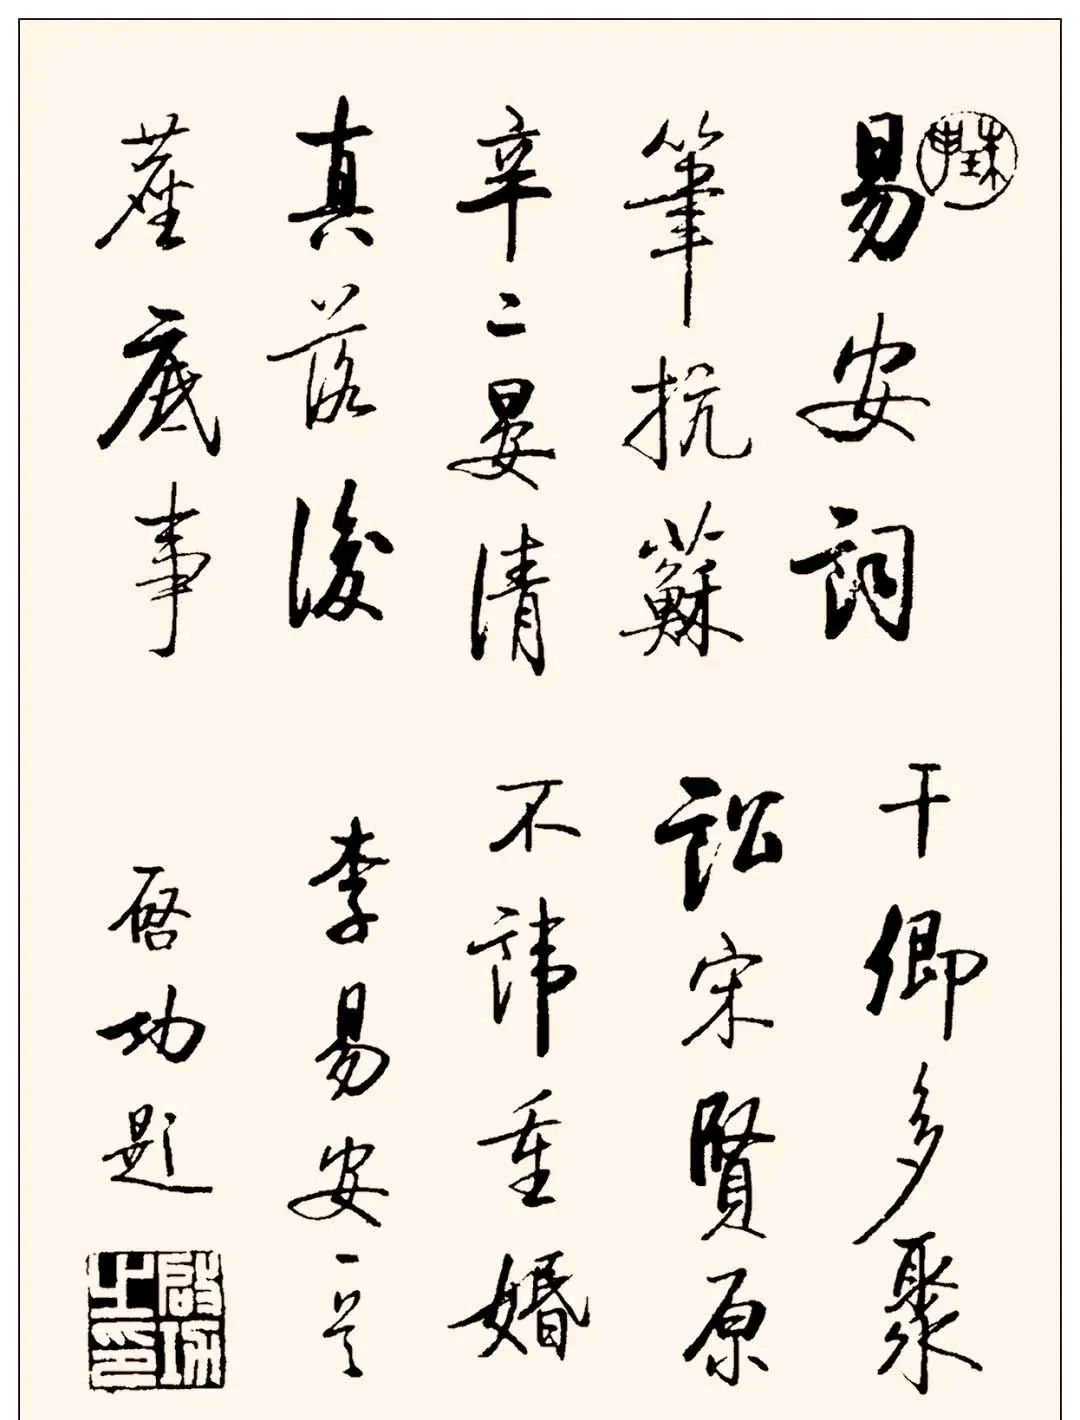 易安詞
筆抗蘇
辛二晏清
真落後
塵底事
干卿多聚
訟宋賢原
不諱重婚
李易安一首
啓功題
珠申
啟功之印